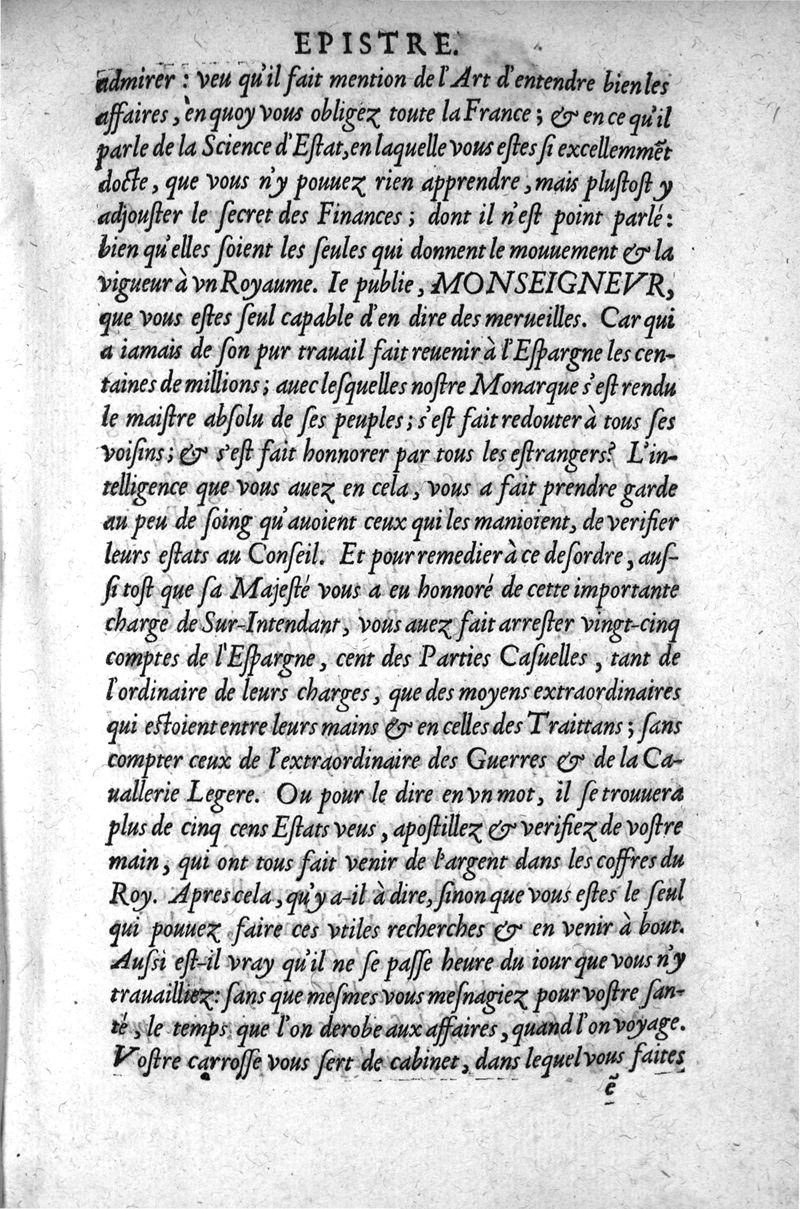 EPISTRE.
admirer : veu qu'il fait mention de l'Art d'entendre bien les
affaires, en quoy vous obligez toute la France ; & en ce qu'il
parle de la Science d'Estat, en laquelle vous estes si excellemmẽt
docte, que vous n'y pouuez rien apprendre, mais plustost y
adjouster le secret des Finances ; dont il n'est point parlé :
bien qu'elles soient les seules qui donnent le mouuement & la
vigueur à vn Royaume. Ie publie, MONSEIGNEVR,
que vous estes seul capable d'en dire des merueilles. Car qui
a iamais de son pur trauail fait reuenir à l'Espargne les cen-
taines de millions ; auec lesquelles nostre Monarque s'est rendu
le maistre absolu de ses peuples ; s'est fait redouter à tous ses
voisins ; & s'est fait honnorer par tous les estrangers? L'in-
telligence que vous auez en cela, vous a fait prendre garde
au peu de soing qu'auoient ceux qui les manioient, de verifier
leurs estats au Conseil. Et pour remedier à ce desordre, aus-
si tost que sa Majesté vous a eu honnoré de cette importante
charge de Sur-Intendant, vous auez fait arrester vingt-cinq
comptes de l'Espargne, cent des Parties Casuelles, tant de
l'ordinaire de leurs charges, que des moyens extraordinaires
qui estoient entre leurs mains & en celles des Traittans ; sans
compter ceux de l'extraordinaire des Guerres & de la Ca-
uallerie Legere. Ou pour le dire en vn mot, il se trouuera
plus de cinq cens Estats veus, apostillez & verifiez de vostre
main, qui ont tous fait venir de l'argent dans les coffres du
Roy. Apres cela, qu'y a-il à dire, sinon que vous estes le seul
qui pouuez faire ces vtiles recherches & en venir à bout.
Aussi est-il vray qu'il ne se passe heure du iour que vous n'y
trauailliez : sans que mesmes vous mesnagiez pour vostre san-
té, le temps que l'on derobe aux affaires, quand l'on voyage.
Vostre carrosse vous sert de cabinet, dans lequel vous faites
ẽ